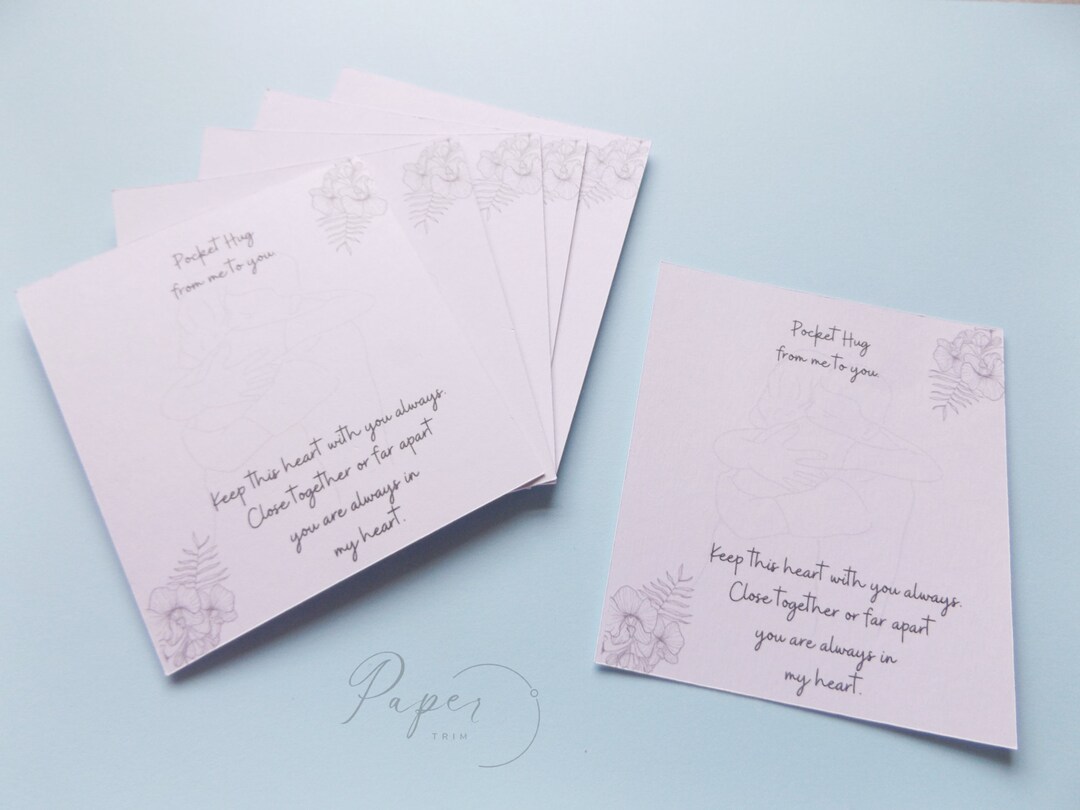 Pocket Hug
from me to you.
Keep this heart with you always.
Close together or far apart
you are always in
my heart.
Pocket Hug
from me to you.
Keep this heart with you always.
Close together or far apart
you are always in
my heart.
Paper
TRIM